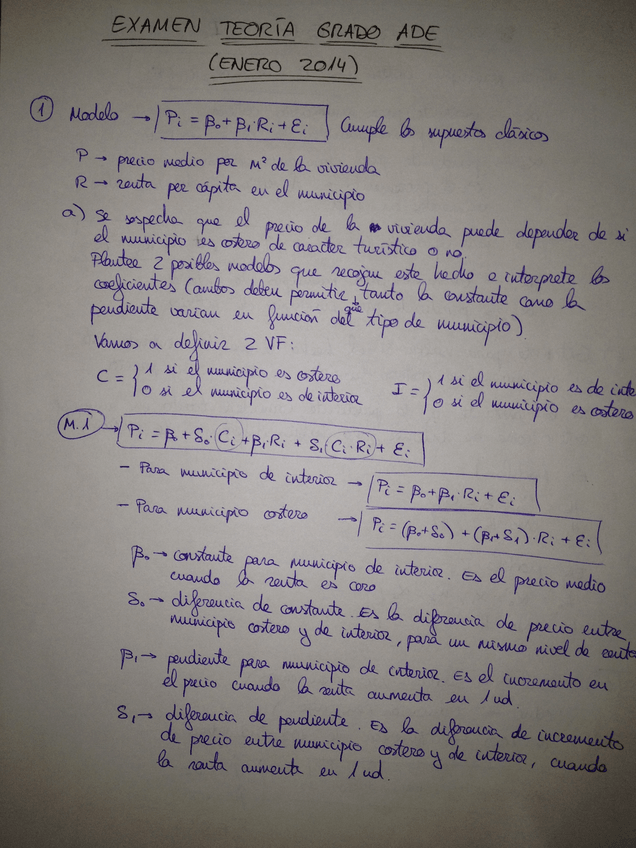 EXAMEN TEORÍA GRADO ADE
(ENERO 2014)
① Modelo → Pi = β0 + β1·Ri + Ei Cumple los supuestos clásicos
P → precio medio por M² de la vivienda
R → renta per cápita en el municipio
a) Se sospecha que el precio de la vivienda puede depender de si
el municipio es costero de caracter turístico o no.
Plantee 2 posibles modelos que recojan este hecho e interprete los
coeficientes (ambos deben permitir que tanto la constante como la
pendiente varian en función del tipo de municipio).
Vamos a definir 2 VF:
C = { 1 si el municipio es costero
0 si el municipio es de interior
I = { 1 si el municipio es de inte
0 si el municipio es costero
M.1 → Pi = β0 + δ0·Ci + β1·Ri + δ1·Ci·Ri + Ei
- Para municipio de interior → Pi = β0 + β1·Ri + Ei
- Para municipio costero → Pi = (β0+δ0) + (β1+δ1)·Ri + Ei
β0 → constante para municipio de interior. Es el precio medio
cuando la renta es cero
δ0 → diferencia de constante. Es la diferencia de precio entre
municipio costero y de interior, para un mismo nivel de
β1 → pendiente para municipio de interior. Es el incremento en
el precio cuando la renta aumenta en 1 ud.
δ1 → diferencia de pendiente. Es la diferencia de incremento
de precio entre municipio costero y de interior, cuando
la renta aumenta en 1 ud.